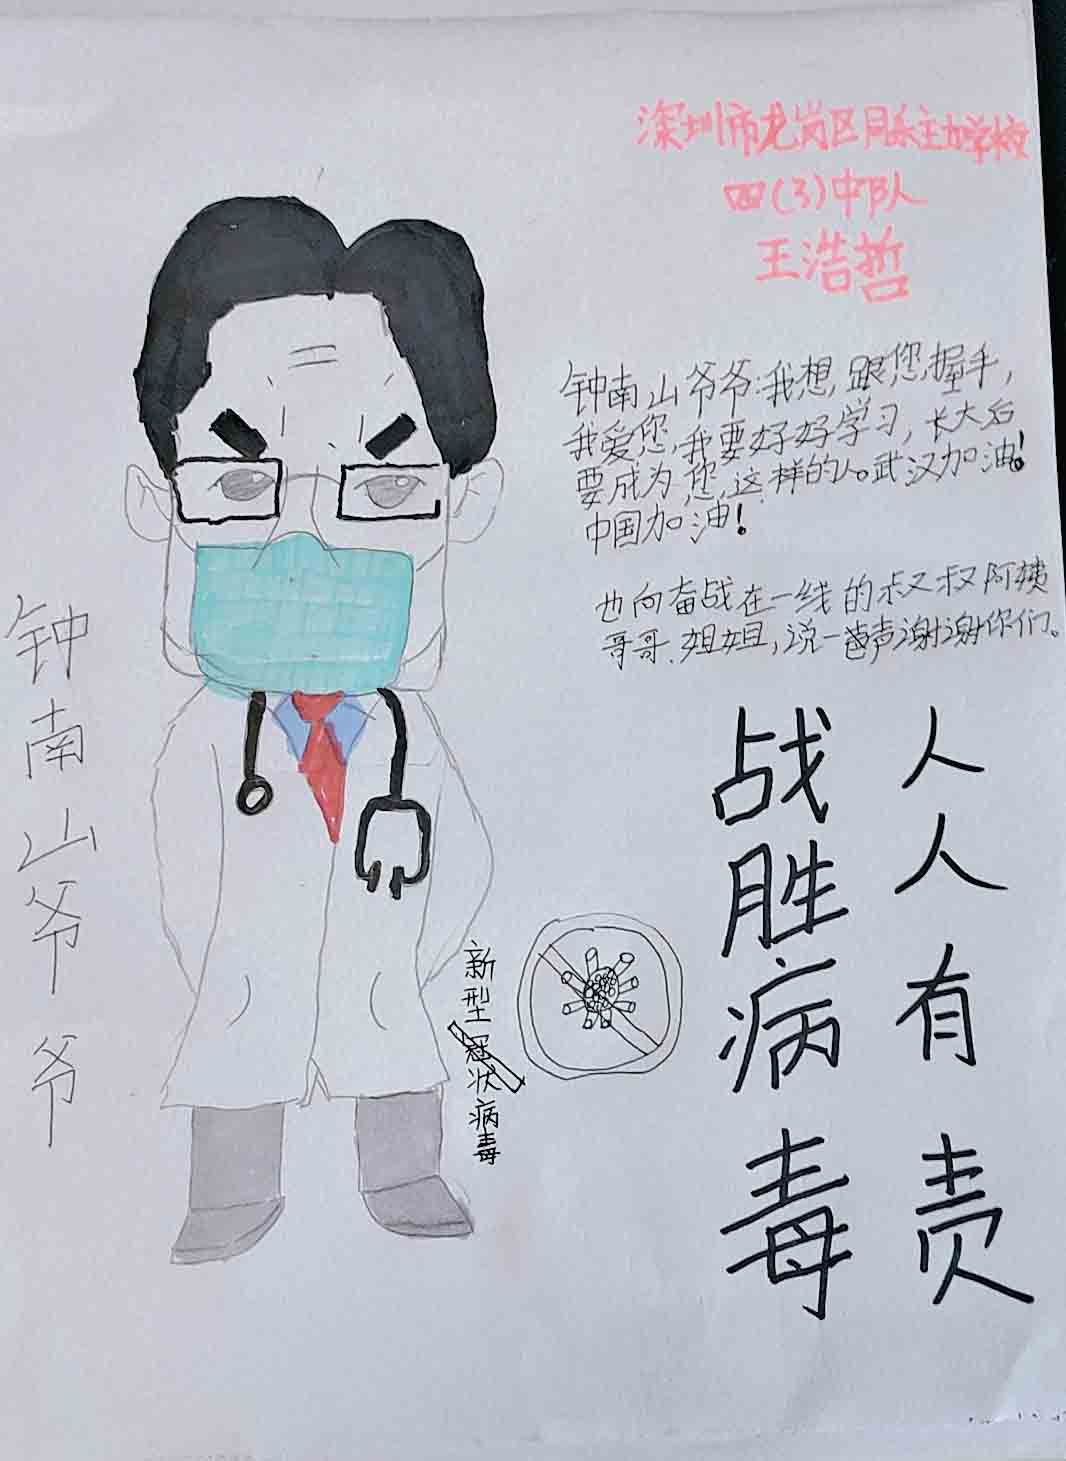 深圳市龙岗区学校
四(3)中队
王浩哲
钟南山爷爷:我想,跟您,握手,
我爱您,我要好好学习,长大后
要成为您,这样的人。武汉加油!
中国加油!
也向奋战在一线的叔叔阿姨
哥哥、姐姐,说一声谢谢你们。
钟南山爷爷
新型冠状病毒
战胜病毒
人人有责